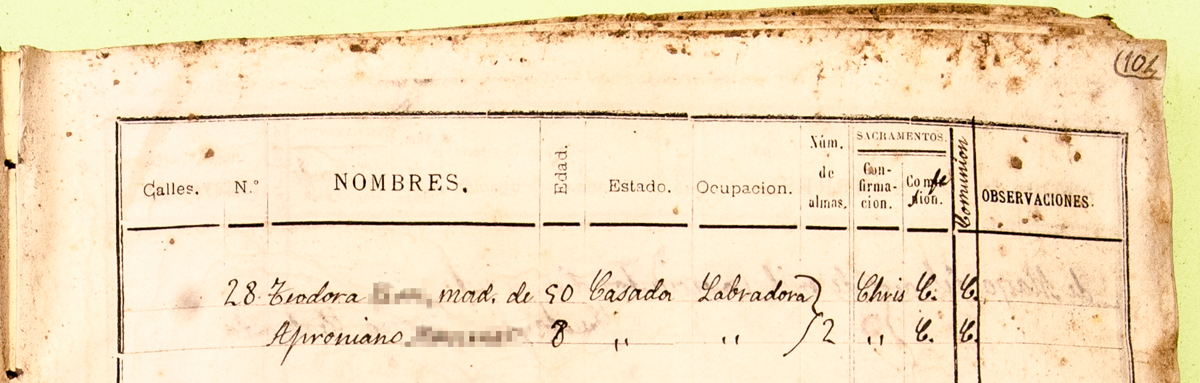 (101
Calles. N.º NOMBRES. Edad. Estado. Ocupacion. Núm. de almas. SACRAMENTOS. Con-firma-cion. Comfesion. Comunion OBSERVACIONES.
28 Teodora mad. de 50 Casada Labradora Chris C. C.
Aproniano 8 " " 2 " C. C.